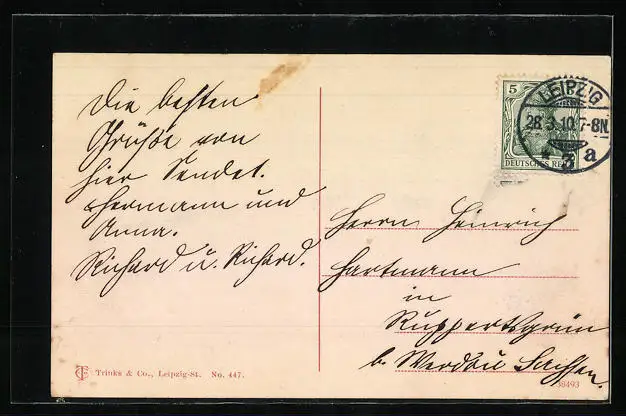 Die besten
Grüße von
hier Sendet.
Hermann und
Anna.
Richard u. Richard.
Trinks & Co., Leipzig-St. No. 447.
5
DEUTSCHES REICH
LEIPZIG
28.3.10.7-8N.
3 a
Herrn Heinrich
Hartmann
in
Ruppertsgrün
b. Werdau Sachsen.
38493